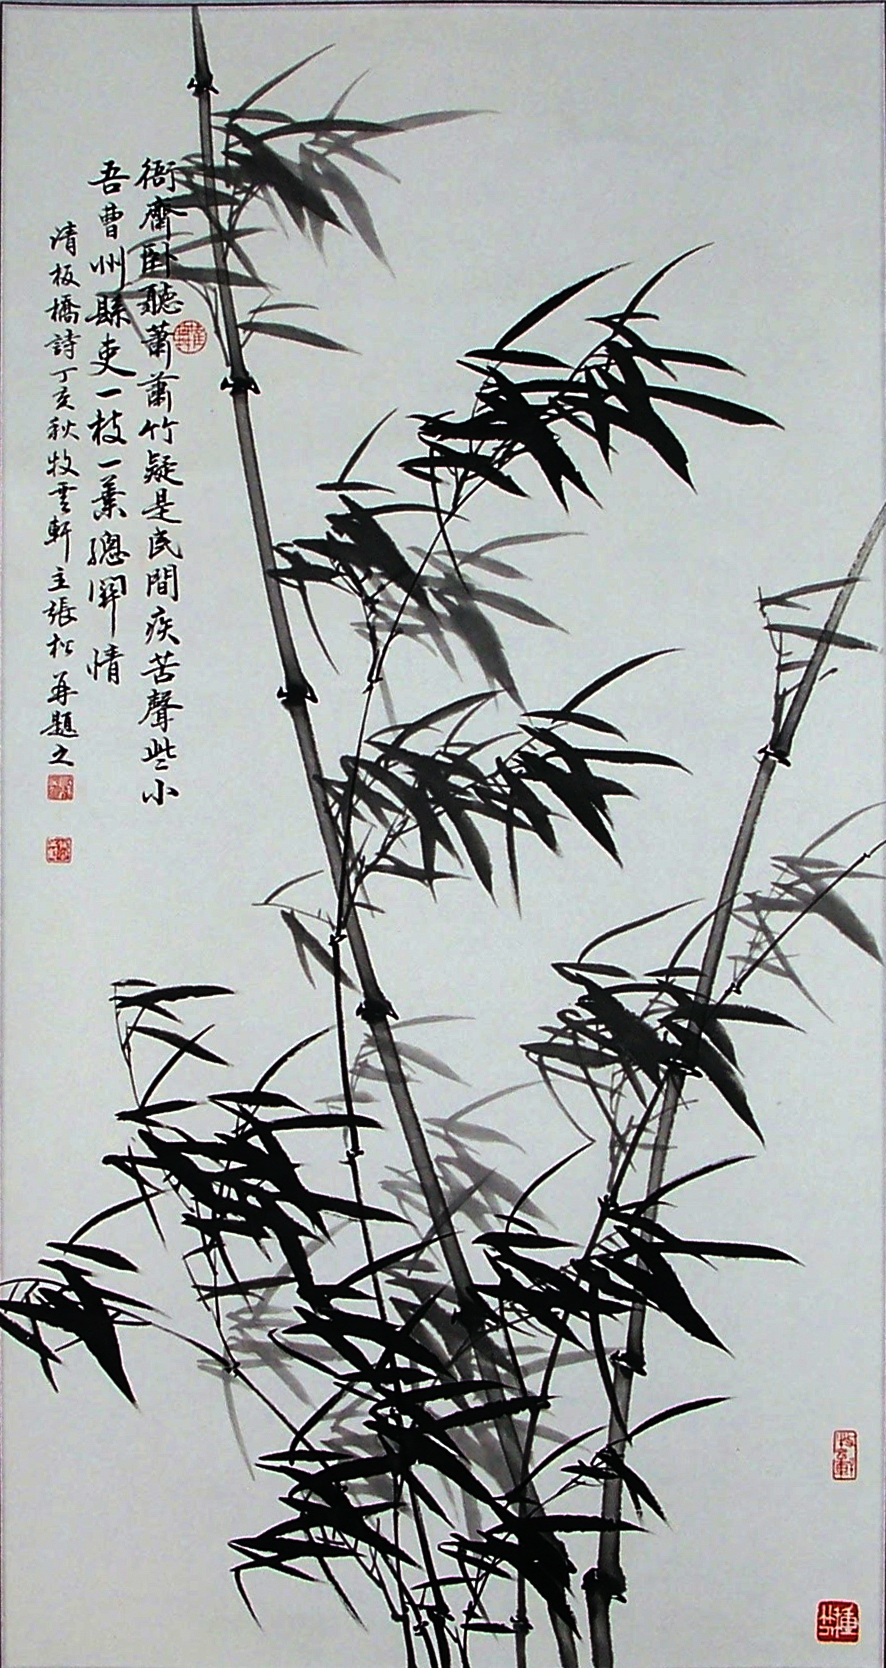 衙齋卧聽蕭蕭竹疑是民間疾苦聲些小
吾曹州縣吏一枝一葉總關情
清板橋詩丁亥秋牧雲軒主張松并題之
牧雲軒